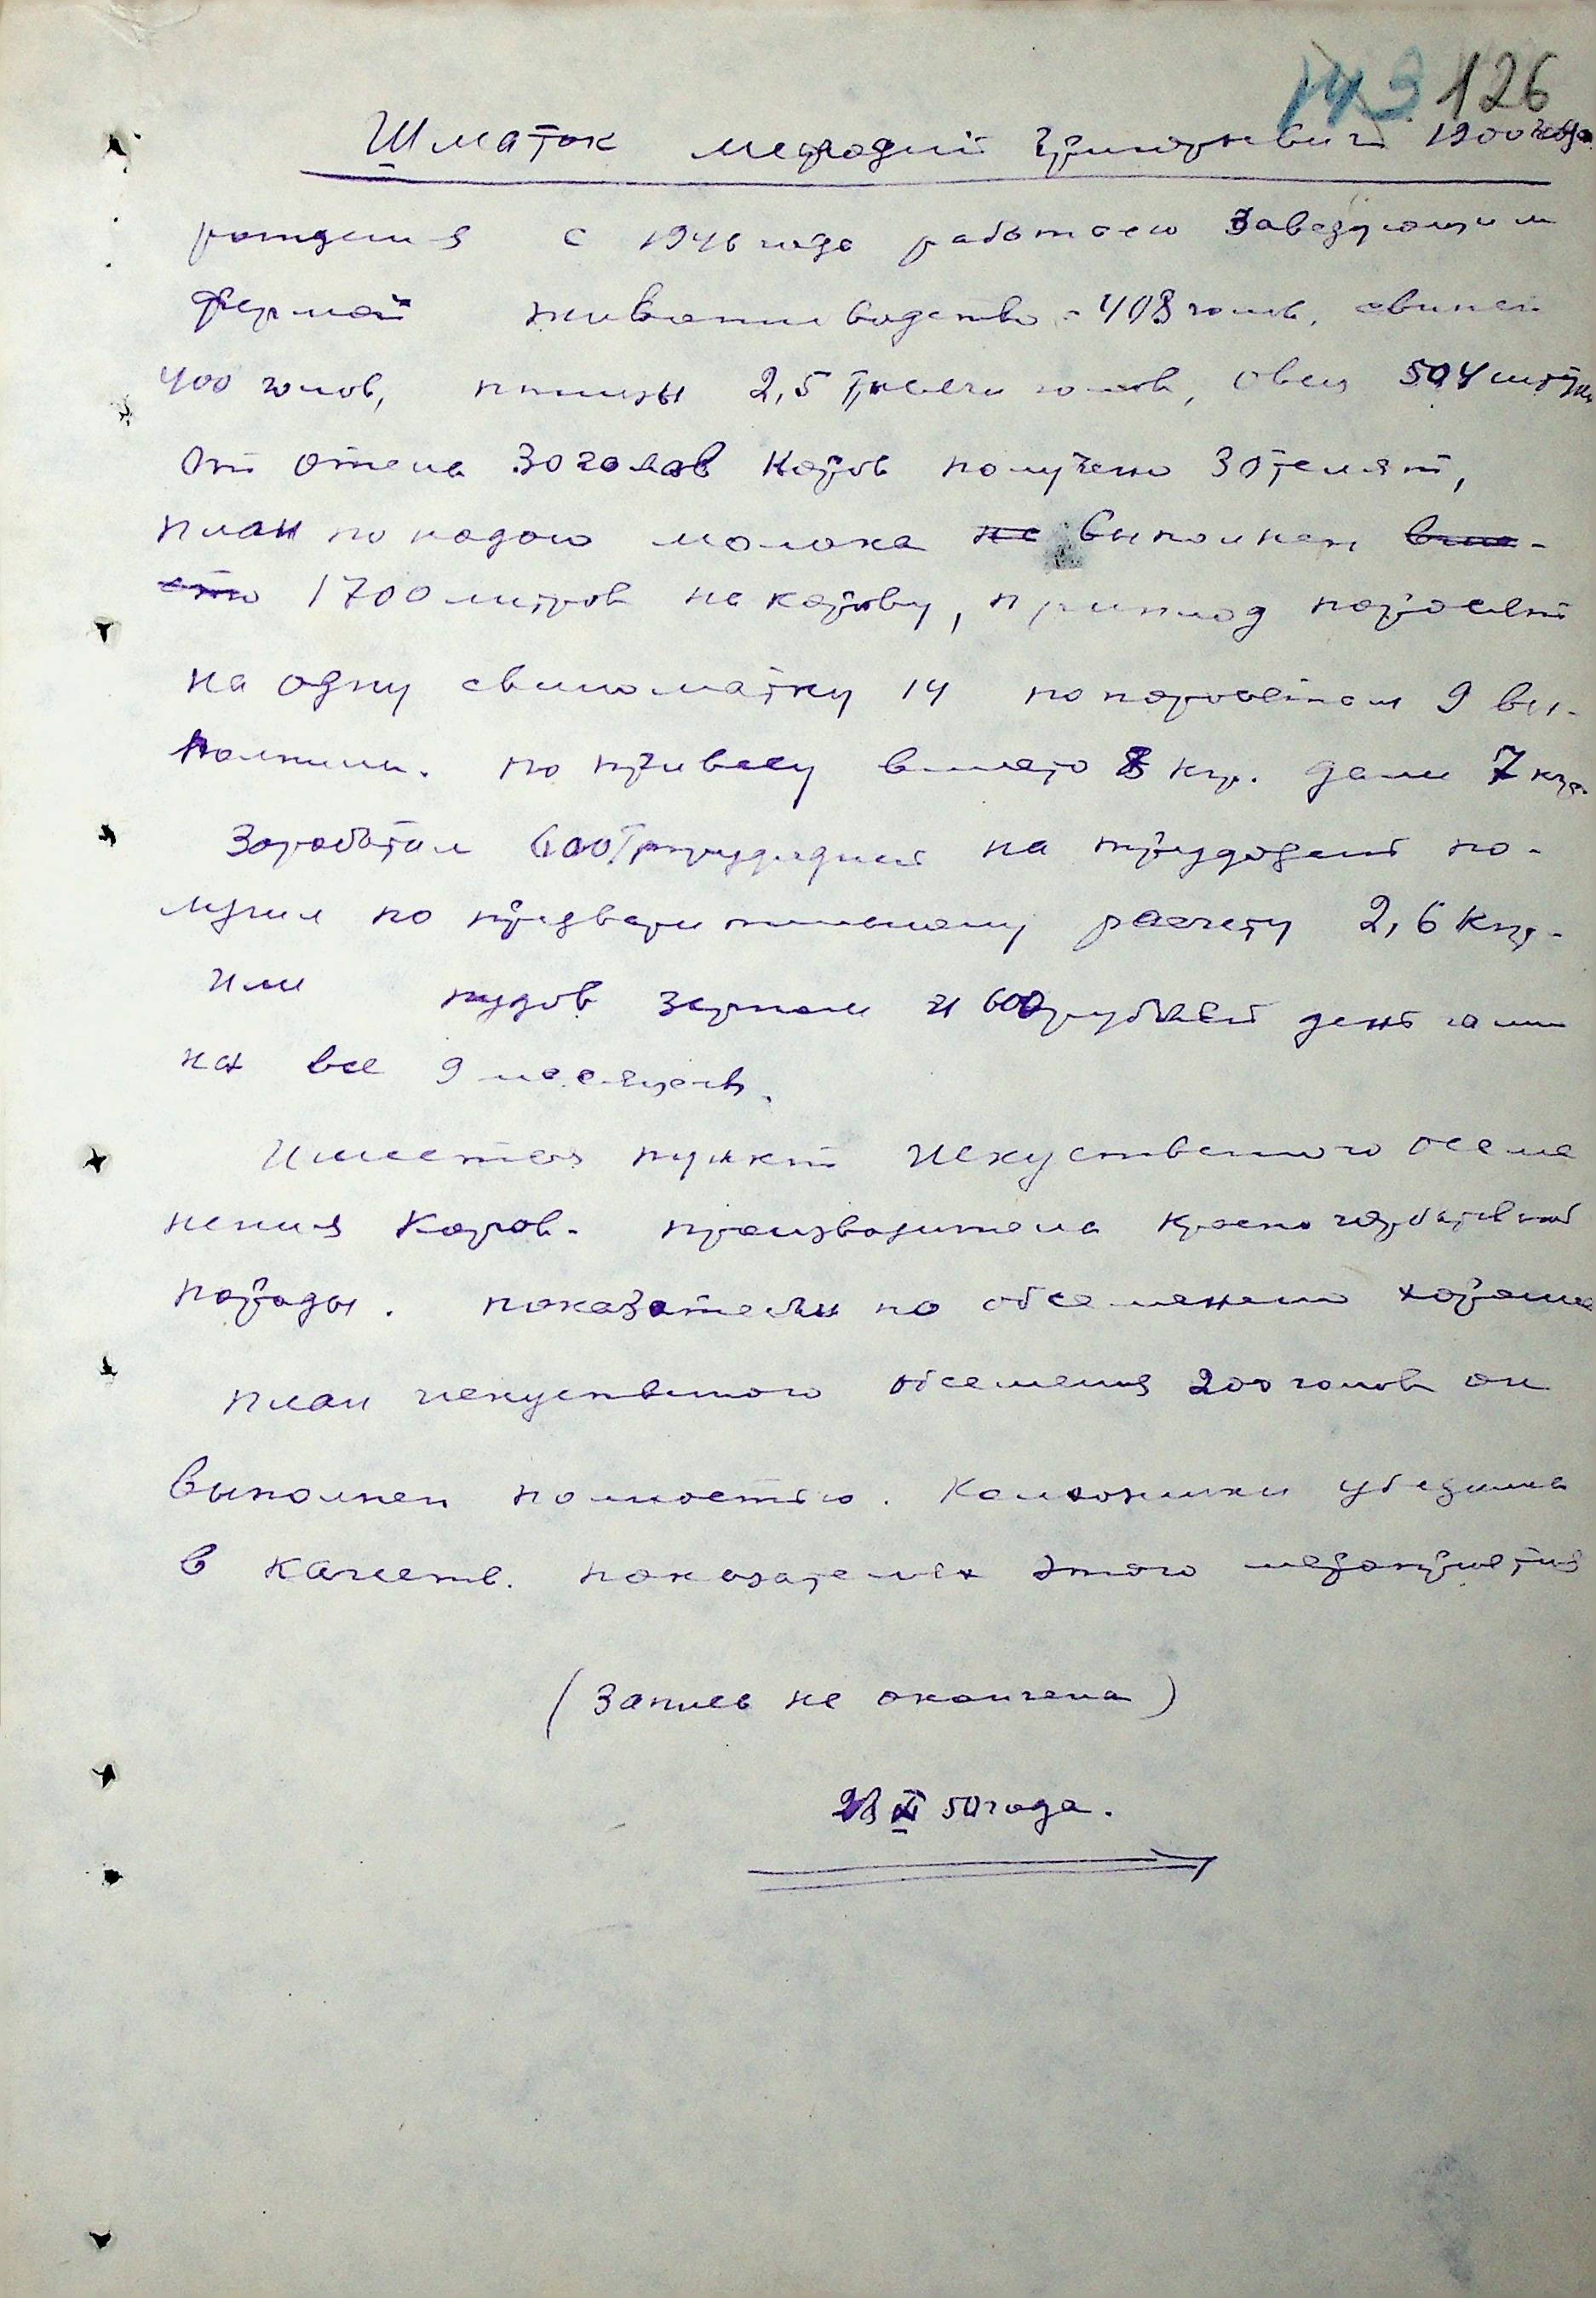 143 126
Шматок Мефодий Григорьевич 1900 года
рождения с 1946 года работаю Заведующим
фермой животноводства - 408 голов, свиней
400 голов, птицы 2,5 тысячи голов, овец 504 штуки
От отела 30 голов Коров получено 30 телят,
план по надою молока не выполнен вме-
сто 1700 литров на корову, приплод поросят
на одну свиноматку 14 по поросятам 9 вы-
полнили. по привесу вместо 8 кгр. дали 7 кгр.
Заработал 600 трудодней на трудодень по-
лучил по предварительному расчету 2,6 Кгр.
или пудов зерном и 600 рублей деньгами
на все 9 месяцев.
Имеется пункт искуственного осеме
нения Коров. производителя красно горбатовской
породы. показатели по обсеменению хорошие
план искуственного обсеменения 200 голов он
выполнен полностью. Колхозники убедились
в качеств. показателях этого мероприятия
(Запись не окончена)
28 XI 50 года.